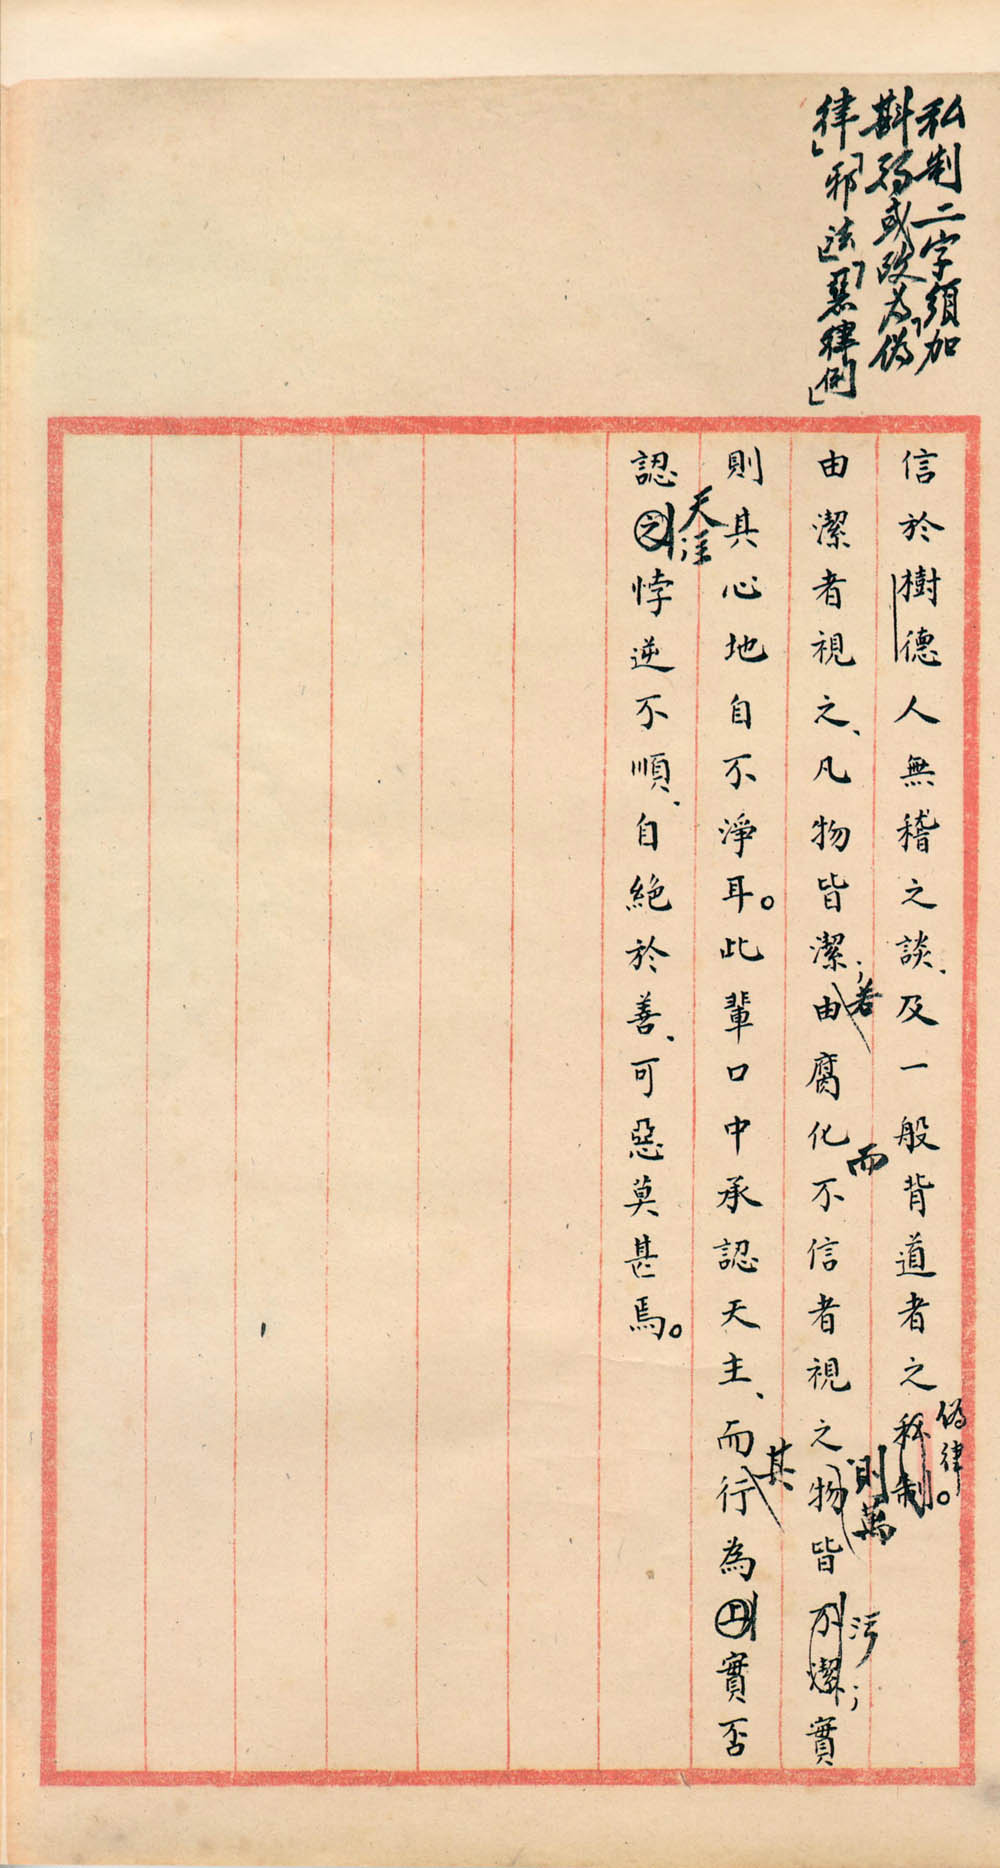 私制二字須加
斟酌或改為「偽
律」「邪法」「惡律例」
信於樹德人無稽之談、及一般背道者之私制
偽律。
由潔者視之、凡物皆潔；由腐化不信者視之物皆不潔；實
若
而
則萬
污
則其心地自不淨耳。此輩口中承認天主、而行為上實否
其
認之悖逆不順、自絕於善、可惡莫甚焉。
天主